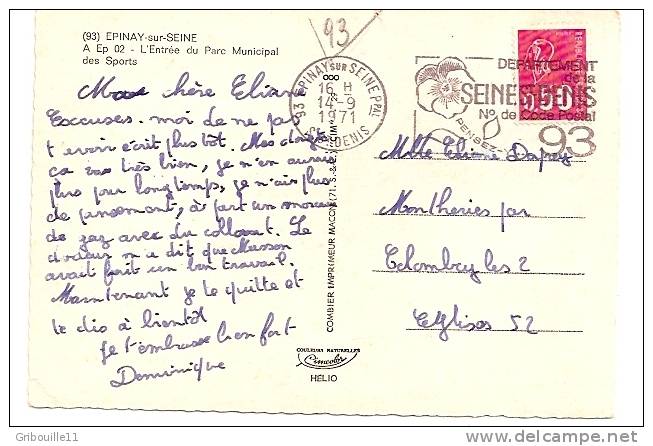 (93) EPINAY-sur-SEINE
A Ep 02 - L'Entrée du Parc Municipal
des Sports
93
Ma chère Eliane
Excuses. moi de ne pas
t'avoir écrit plus tôt. Mes doigts
ça va très bien, je n'en aurai
plus pour longtemps, je n'ai plus
de pansement, à part un morceau
de gaz avec du collant. Le
docteur m'a dit que
avait fait un bon travail.
Maintenant je te quitte et
te dis à bientôt
je t'embrasse bien fort
Dominique
93 EPINAY SUR SEINE PPAL
16 H
14-9
1971
ST DENIS
COMBIER IMPRIMEUR MACON (71. S.-&-L.)
COULEURS NATURELLES
Cimcolor
HÉLIO
DEPARTEMENT
de la
SEINE ST DENIS
No de Code Postal
93
PENSEZ-Y
0.50
Mlle Eliane
Montheries par
Colombey les 2
Eglises 52
© Gribouille11
www.delcampe.net